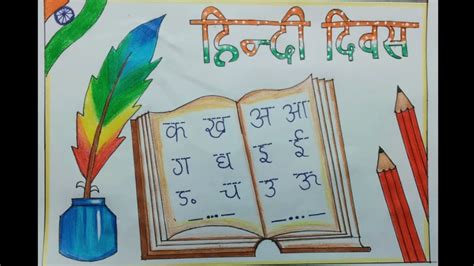 हिन्दी दिवस
क ख
ग घ
ङ च
अ आ
इ ई
उ ऊ